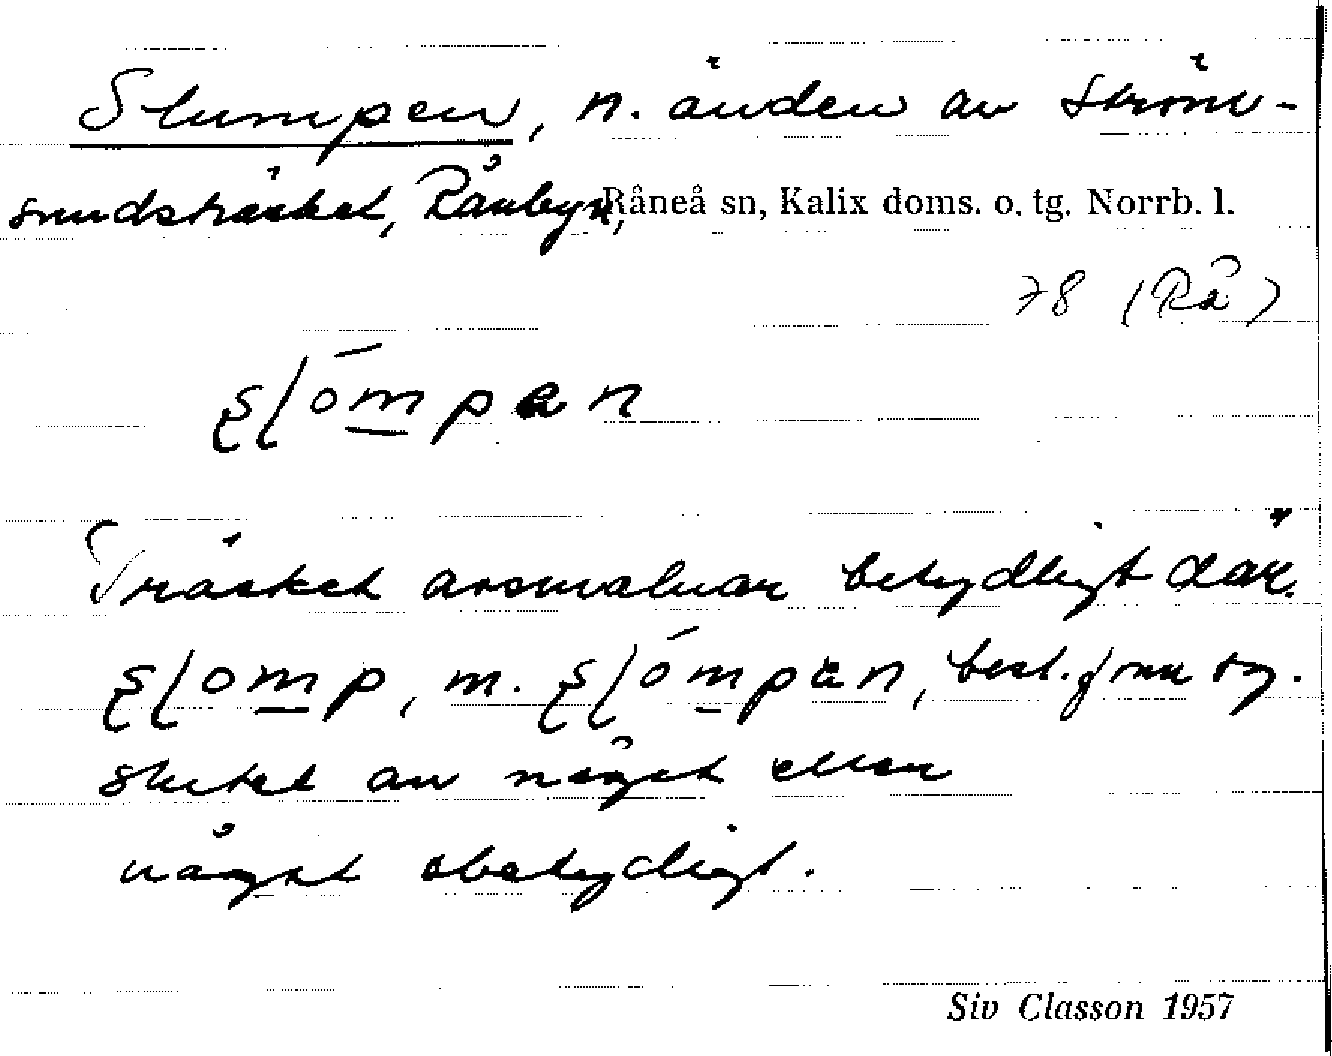 Slumpen, n. änden av Ström-
sundsträsket, Rånbyn, Råneå sn, Kalix doms. o. tg. Norrb. l.
78 (Rå)
Träsket avsmalnar betydligt där.
m. best. form sg.
slutet av något eller
något obetydligt.
Siv Classon 1957